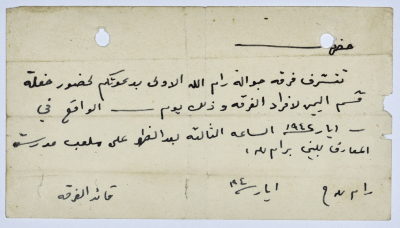 حضرة
تتشرف فرقة جوالة رام الله الاولى بدعوتكم لحضور حفلة
قسم اليمين لافراد الفرقه و ذلك يوم ـــ الواقع في
ـــ ايار ١٩٤٢ الساعه الثالثة بعد الظهر على ملعب مدرسة
المعارف للبنين برام الله ،
رام الله في ايار ٩٤٢
قائد الفرقة